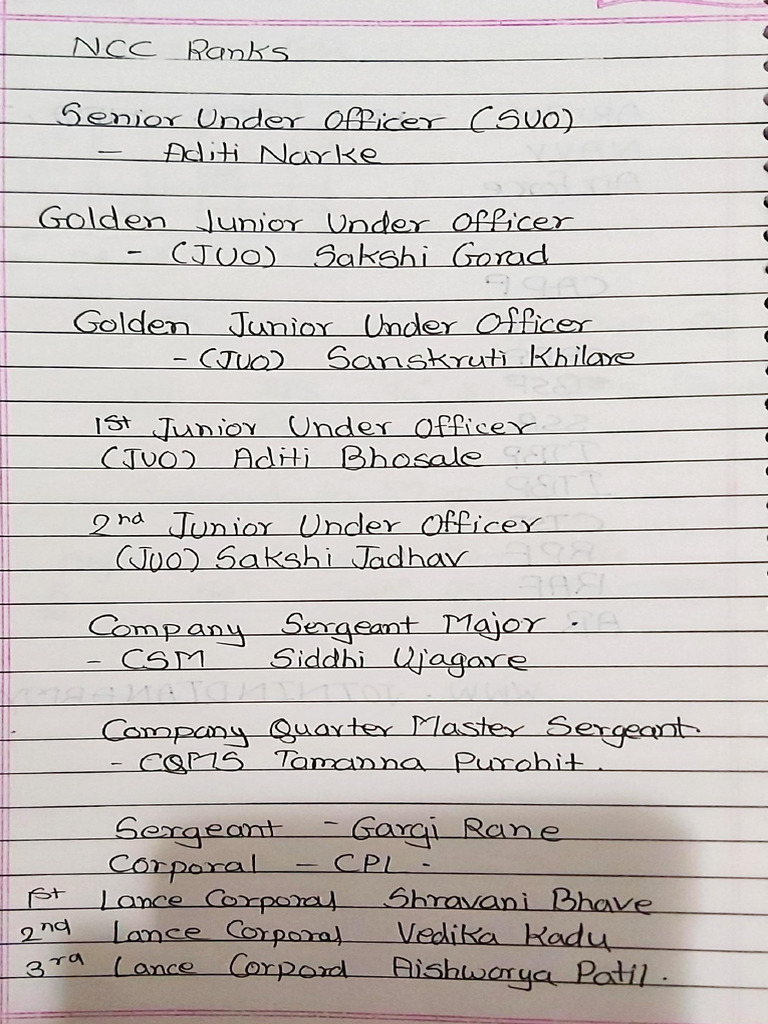 NCC Ranks
Senior Under Officer (SUO)
- Aditi Narke
Golden Junior Under Officer
- (JUO) Sakshi Gorad
Golden Junior Under Officer
- (JUO) Sanskruti Khilare
1st Junior Under Officer
(JUO) Aditi Bhosale
2nd Junior Under Officer
(JUO) Sakshi Jadhav
Company Sergeant Major .
- CSM Siddhi Ujagare
Company Quarter Master Sergeant.
- CQMS Tamanna Purohit.
Sergeant - Gargi Rane
Corporal - CPL -
1st Lance Corporal Shravani Bhave
2nd Lance Corporal Vedika Kadu
3rd Lance Corporal Aishwarya Patil.